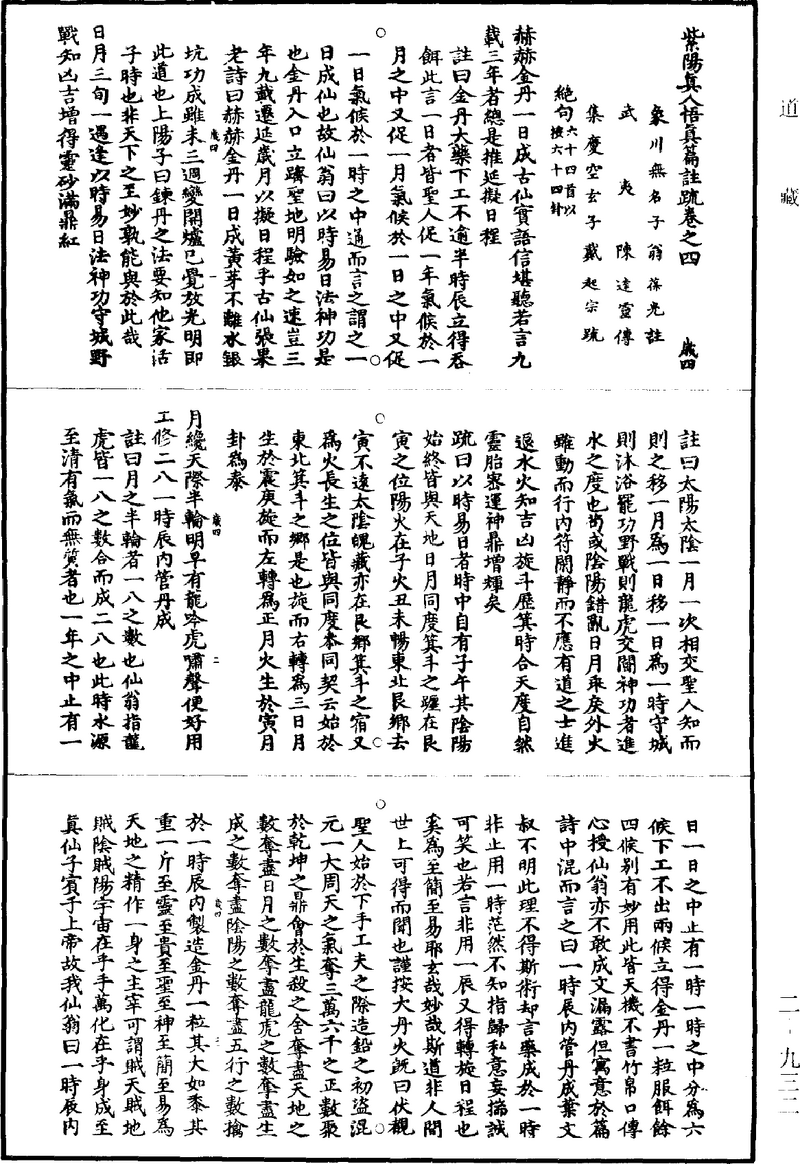 道藏
二-九三二
紫陽真人悟真篇註疏卷之四　歲四
象川無名子翁葆光註
武夷陳達靈傳
集慶空玄子戴起宗疏
絶句六十四首以按六十四卦
赫赫金丹一日成古仙實語信堪聽若言九
載三年者總是推延擬日程
註曰金丹大藥下工不逾半時辰立得吞
餌此言一日者皆聖人促一年氣候於一
月之中又促一月氣候於一日之中又促
一日氣候於一時之中通而言之謂之一
日成仙也故仙翁曰以時易日法神功是
也金丹入口立躋聖地明驗如之速豈三
年九載遷延歲月以擬日程乎古仙張果
老詩曰赫赫金丹一日成黃芽不離水銀
歲四　一
坑功成雖未三週變開爐已覺放光明即
此道也上陽子曰鍊丹之法要知他家活
子時也非天下之至妙孰能與於此哉
日月三旬一遇逢以時易日法神功守城野
戰知凶吉增得靈砂滿鼎紅
註曰太陽太陰一月一次相交聖人知而
則之移一月為一日移一日為一時守城
則沐浴罷功野戰則龍虎交鬭神功者進
水之度也茍或陰陽錯亂日月乖戾外火
雖動而行內符閴靜而不應有道之士進
退水火知吉凶旋斗歷箕時合天度自然
靈胎密運神鼎增輝矣
疏曰以時易日者時中自有子午其陰陽
始終皆與天地日月同度箕斗之躔在艮
寅之位陽火在子火丑未暢東北艮鄉去
寅不遠太陰魄藏亦在艮鄉箕斗之宿又
為火長生之位皆與同度叅同契云始於
東北箕斗之鄉是也旋而右轉為三日月
生於震庚旋而左轉為正月火生於寅月
卦為泰
歲四　二
月纔天際半輪明早有龍吟虎嘯聲便好用
工修二八一時辰內管丹成
註曰月之半輪者一八之數也仙翁指龍
虎皆一八之數合而成二八也此時水源
至清有氣而無質者也一年之中止有一
日一日之中止有一時一時之中分為六
候下工不出兩候立得金丹一粒服餌餘
四候別有妙用此皆天機不書竹帛口傳
心授仙翁亦不敢成文漏露但寓意於篇
詩中混而言之曰一時辰內管丹成葉文
叔不明此理不得斯術却言藥成於一時
非止用一時茫然不知指歸私意妄揣誠
可笑也若言非用一辰又得轉旋日程也
奚為至簡至易耶玄哉妙哉斯道非人間
世上可得而聞也謹按大丹火訣曰伏覩
聖人始於下手工夫之際造鉛之初盜混
元一大周天之氣奪三萬六千之正數聚
於乾坤之鼎會於生殺之舍奪盡天地之
數奪盡日月之數奪盡龍虎之數奪盡生
成之數奪盡陰陽之數奪盡五行之數擒
歲四　三
於一時辰內製造金丹一粒其大如黍其
重一斤至靈至貴至聖至神至簡至易為
天地之精作一身之主宰可謂賊天賊地
賊陰賊陽宇宙在乎手萬化在乎身成至
真仙子賓于上帝故我仙翁曰一時辰內